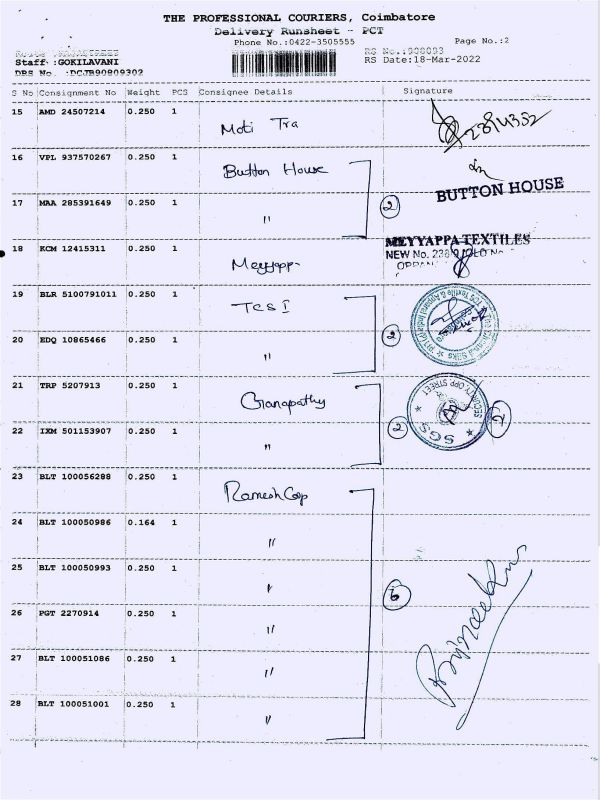 THE PROFESSIONAL COURIERS, Coimbatore
Delivery Runsheet - PCT
Phone No.:0422-3505555 Page No.:2
Staff :GOKILAVANI RS No.:908093
DRS No. :PCJB90809302 RS Date:18-Mar-2022
S No Consignment No Weight PCS Consignee Details Signature
15 AMD 24507214 0.250 1 Moti Tra
16 VPL 937570267 0.250 1 Button House
BUTTON HOUSE
17 MAA 285391649 0.250 1 " 2
18 KCM 12415311 0.250 1 Meyyapp
MEYYAPPA TEXTILES
NEW No. 238
19 BLR 5100791011 0.250 1 TCS I
20 EDQ 10865466 0.250 1 " 2
21 TRP 5207913 0.250 1 Ganapathy
SECURITY OPP STREET
SGS
22 IXM 501153907 0.250 1 " 2
23 BLT 100056288 0.250 1 Ramesh Cop
24 BLT 100050986 0.164 1 "
25 BLT 100050993 0.250 1 " 6
26 PGT 2270914 0.250 1 "
27 BLT 100051086 0.250 1 "
28 BLT 100051001 0.250 1 "